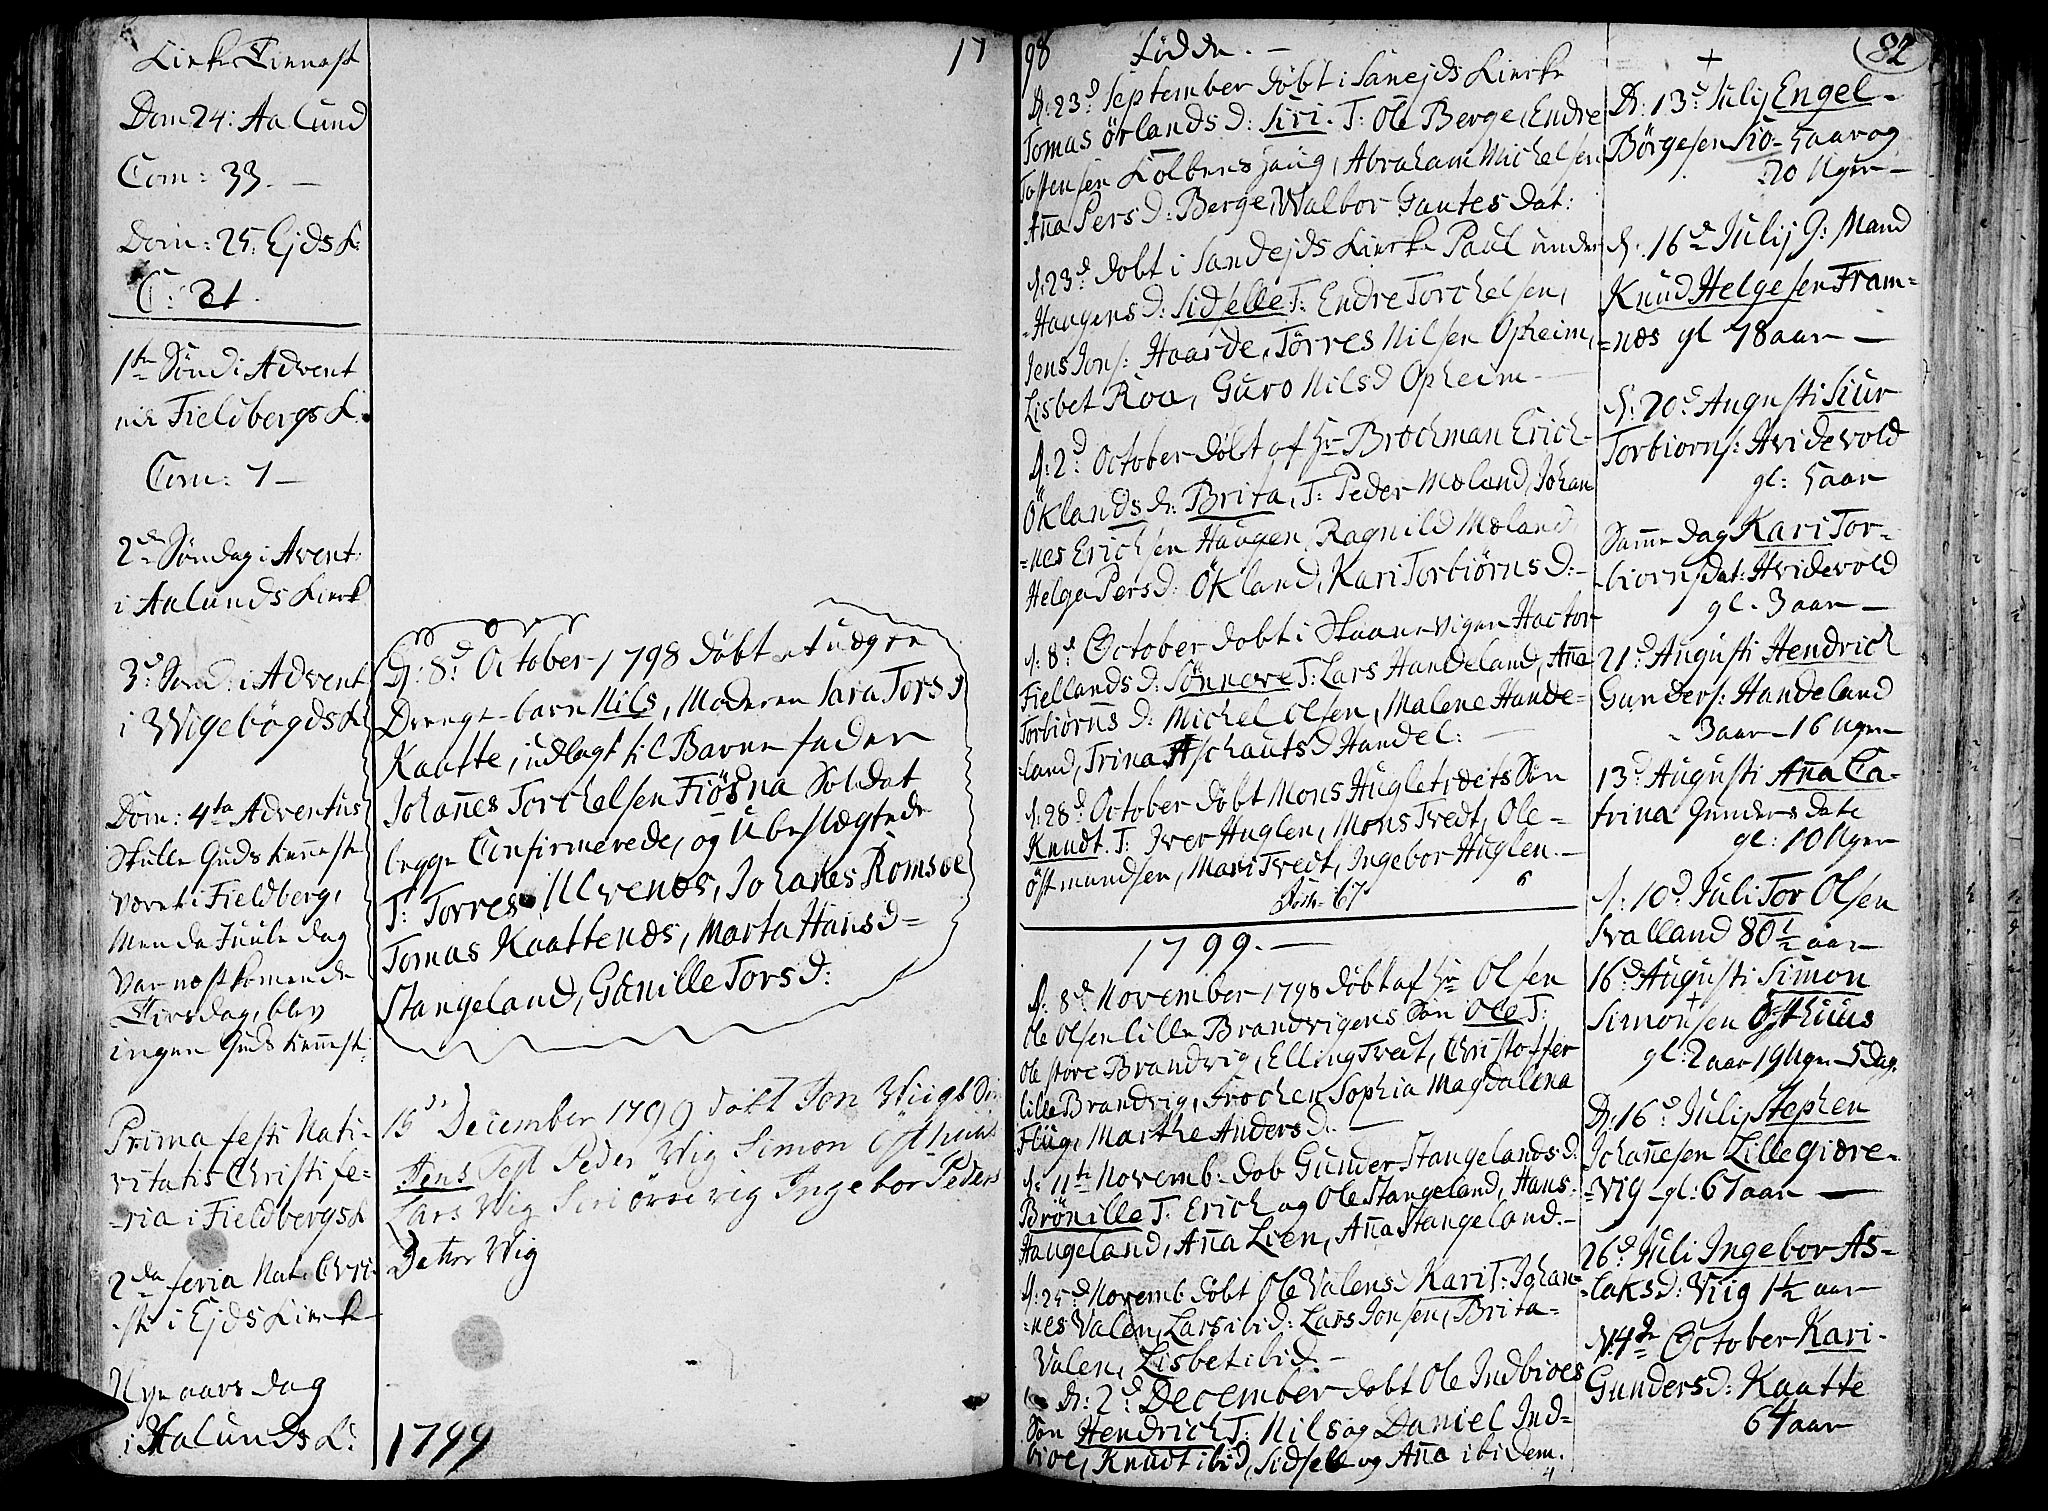 Kirke Tienneste
Dom 24: Aalund
Com: 33. —
Dom: 25: Ejds K:
C: 21.
1te Sönd: i Advent
ved Fieldbergs K.
Com: 7 —
2de Söndag i Avent:
i Aalunds Kirk
3d Sönd: i Advent
i Wigebögds K
Dom: 4ta Adventus
Skulle Guds tienneste
været i Fieldberg,
Men da Juule dag
Var næstkomende
Tirsdag, blev
ingen Guds tienneste.
Prima festi Nati-
vitatis Christi fe-
-ria i Fieldbergs K
2da feria Nat: Chri-
-sti i Ejds Kirke
Nye aars dag
i Aalunds K:
17
D: 8d October 1798 döbt et uægte
Drenge-barn Nils, Moderen Sara Tors d
Kaatte, udlagt til Barne fader
Johannes Torchelsen Fiösna Soldat
begge Confirmerede, og Ubeslægtede
T: Torres Ulvenæs, Johanes Romsöe
Tomas Kaattenæs, Marta Hans d=
Stangeland, Gunille Tors d:
15d December 1799 döbt Jon Wiigs Sön
Jens Test Peder Wig Simon Östhuus
Lars Wig Siri Örrevig Ingebor Peders
Datter Wig
1799
98
Födde. —
82
D: 23d September döbt i Sanejds Kirke
Tomas Örlands d: Siri. T: Ole Berge, Endre
Tostensen Kolbens haug, Abraham Michelsen
Ana Pers d: Berge, Walbor Gautes dat:
d: 23d döbt i Sandejds Kirke Paul under
-Haugens d: Sidselle T: Endre Torchelsen,
Jens Jons: Haarde, Törres Nilsen Opheim,
Lisbet Roa, Guro Nils d Opheim —
D: 2d October döbt af Hr Brochman Erich
Öklands d: Brita, T: Peder Moland, Johan
=nes Erichsen Haugen, Ragnild Moland
Helga Pers d: Ökland, Kari Torbiörns d: —
d: 8d October döbt i Skaanevigen Hactor
Fiellands d: Sönneve T: Lars Handeland, Ana
Torbiörns d: Michel Olsen, Malene Hande-
-land, Trina Aschauts d Handel: —
d: 28d October döbt Mons Hugletvedts Sön
Knudt. T: Iver Huglen, Mons Tvedt, Ole=
Östmundsen, Mari Tvedt, Ingebor Huglen. —
67
6
1799. —
D: 8d November 1798 döbt af Hr Olsen
Ole Olsen lille Brandvigens Sön Ole T:
Ole store Brandvig, Elling Tvedt, Christoffer
lille Brandvig, Frochen Sophia Magdalena
Flüg, Marthe Anders d. —
d: 11te Novemb: döb Gunder Stangelands d:
Brönille T: Erich og Ole Stangeland, Hans
Haugeland, Ana Lien, Ana Stangeland. —
d: 25d Novemb döbt Ole Valens d Kari T: Johan=
-nes Valen, Lars ibid: Lars Jonsen, Brita=
Valen, Lisbet ibid. —
D: 2d December döbt Ole Indbioes
Sön Hendrich T: Nils og Daniel Ind=
bioe, Knudt ibid, Sidsele og Ana ibidem.
4
+
D: 13d Julij Engel-
Börgesen 5 aar og
20 Uger —
d: 16d Julij G: Mand
Knud Helgesen Fram=
=næs gl 78 aar —
d: 20d Augusti Siur
Torbiorns: Hvidevold
gl: 5 aar
Same dag Kari Tor-
-biornsdat: Hvidevold
gl. 3 aar —
21d Augusti Hendrich
Gunders: Handeland
3 aar — 16 Uger
13d Augusti Ana Ca-
trina Gunders date
gl: 10 Uger
d: 10d Juli Tor Olsen
Svalland 80 1/2 aar
16d Augusti Simon
+
Simonsen Østhuus
gl: 2 aar 19 Uger 5 Dag.
D: 16d Julij Stephen
Johanesen Lillegiære-
-vig gl: 67 aar —
26d Juli Ingebor As-
-laks d: Viig 1 1/2 aar
4de October Kari-
Gunders d: Kaatte
64 aar